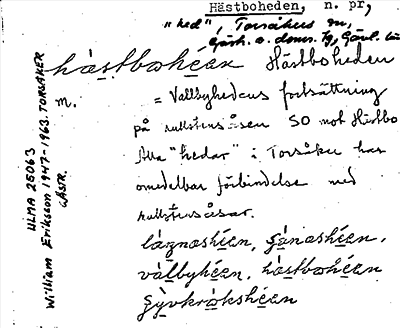 Hästboheden, n. pr,
"hed", Torsåkers sn,
Gästr. o. doms. tg, Gävl. län
hàstbohéen Hästboheden
m.
= Vallbyhedens fortsättning
på rullstensåsen SO mot Hästbo
Alla "hedar" i Torsåker har
omedelbar förbindelse med
rullstensåsar.
lágnashéen, gánashéen,
válbyhéen, hástbohéen
gývkrókshéen
ULMA 25063
William Eriksson 1947-1963. TORSÅKER
GÄSTR.